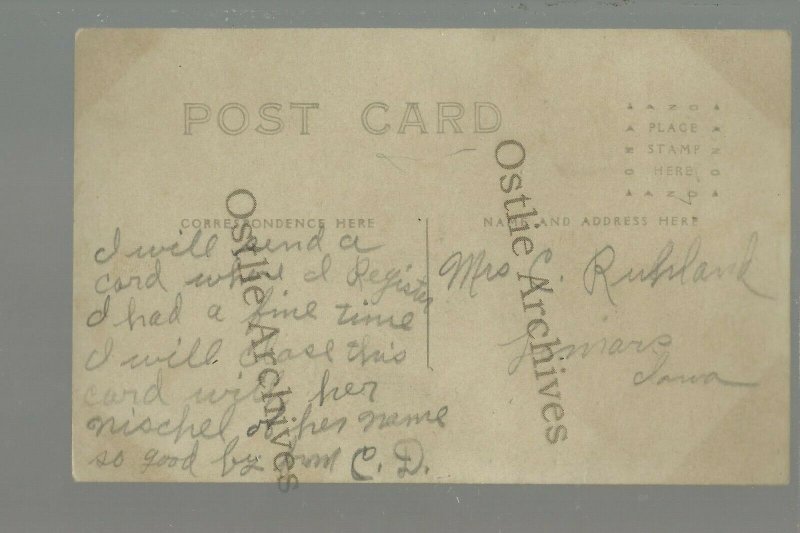 POST CARD
AZO
PLACE
STAMP
HERE
AZO
CORRESPONDENCE HERE
NAME AND ADDRESS HERE
I will send a
card where I Register
I had a fine time
I will close this
card with her
nischel of her name
so good by from C. D.
Mrs C. Ruhland
Lemars
Iowa
Ostlie Archives
Ostlie Archives